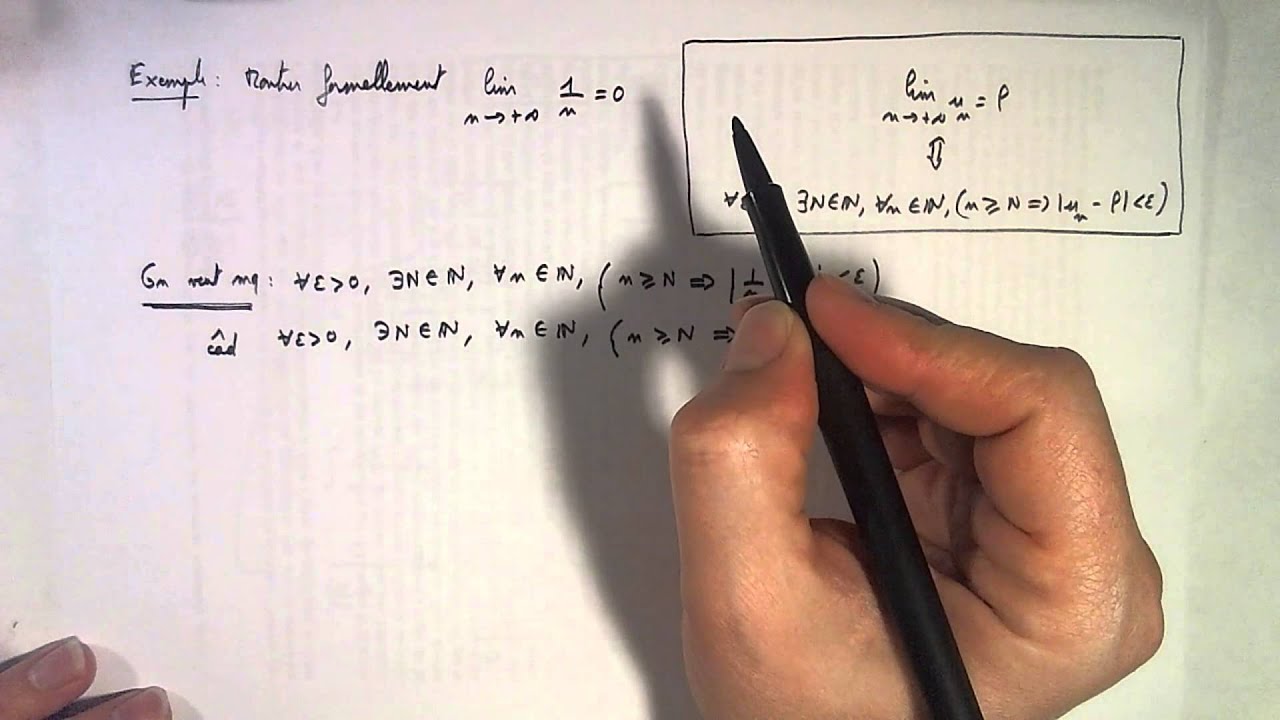 Exemple : Montrer formellement lim 1/n = 0
n→+∞
lim u_n = ℓ
n→+∞
⇕
∀ε ∃N∈ℕ, ∀n∈ℕ, (n ≥ N ⇒ |u_n - ℓ| < ε)
On veut mq : ∀ε>0, ∃N∈ℕ, ∀n∈ℕ, (n ≥ N ⇒ |1/n < ε)
càd ∀ε>0, ∃N∈ℕ, ∀n∈ℕ, (n ≥ N ⇒